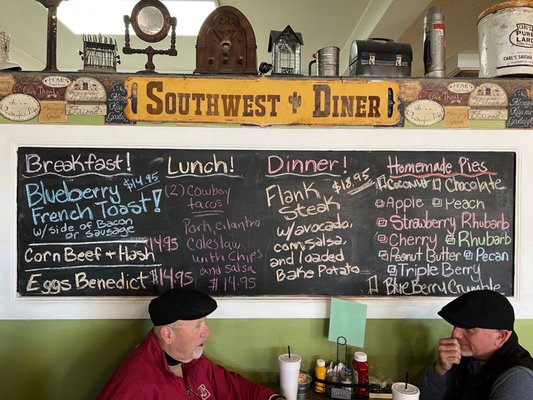 PURE
LARD
SOUTHWEST DINER
Breakfast!
Blueberry $14.95
French Toast!
w/side of Bacon
or Sausage
Corn Beef + Hash 14.95
Eggs Benedict $14.95
Lunch!
(2) Cowboy
tacos
Pork, cilantro
Coleslaw
with Chips
and salsa
$14.95
Dinner!
$18.95
Flank
Steak
w/avocado,
corn, salsa,
and loaded
Bake Potato
Homemade Pies
Coconut Chocolate
Apple Peach
Strawberry Rhubarb
Cherry Rhubarb
Peanut Butter Pecan
Triple Berry
BlueBerry Crumble